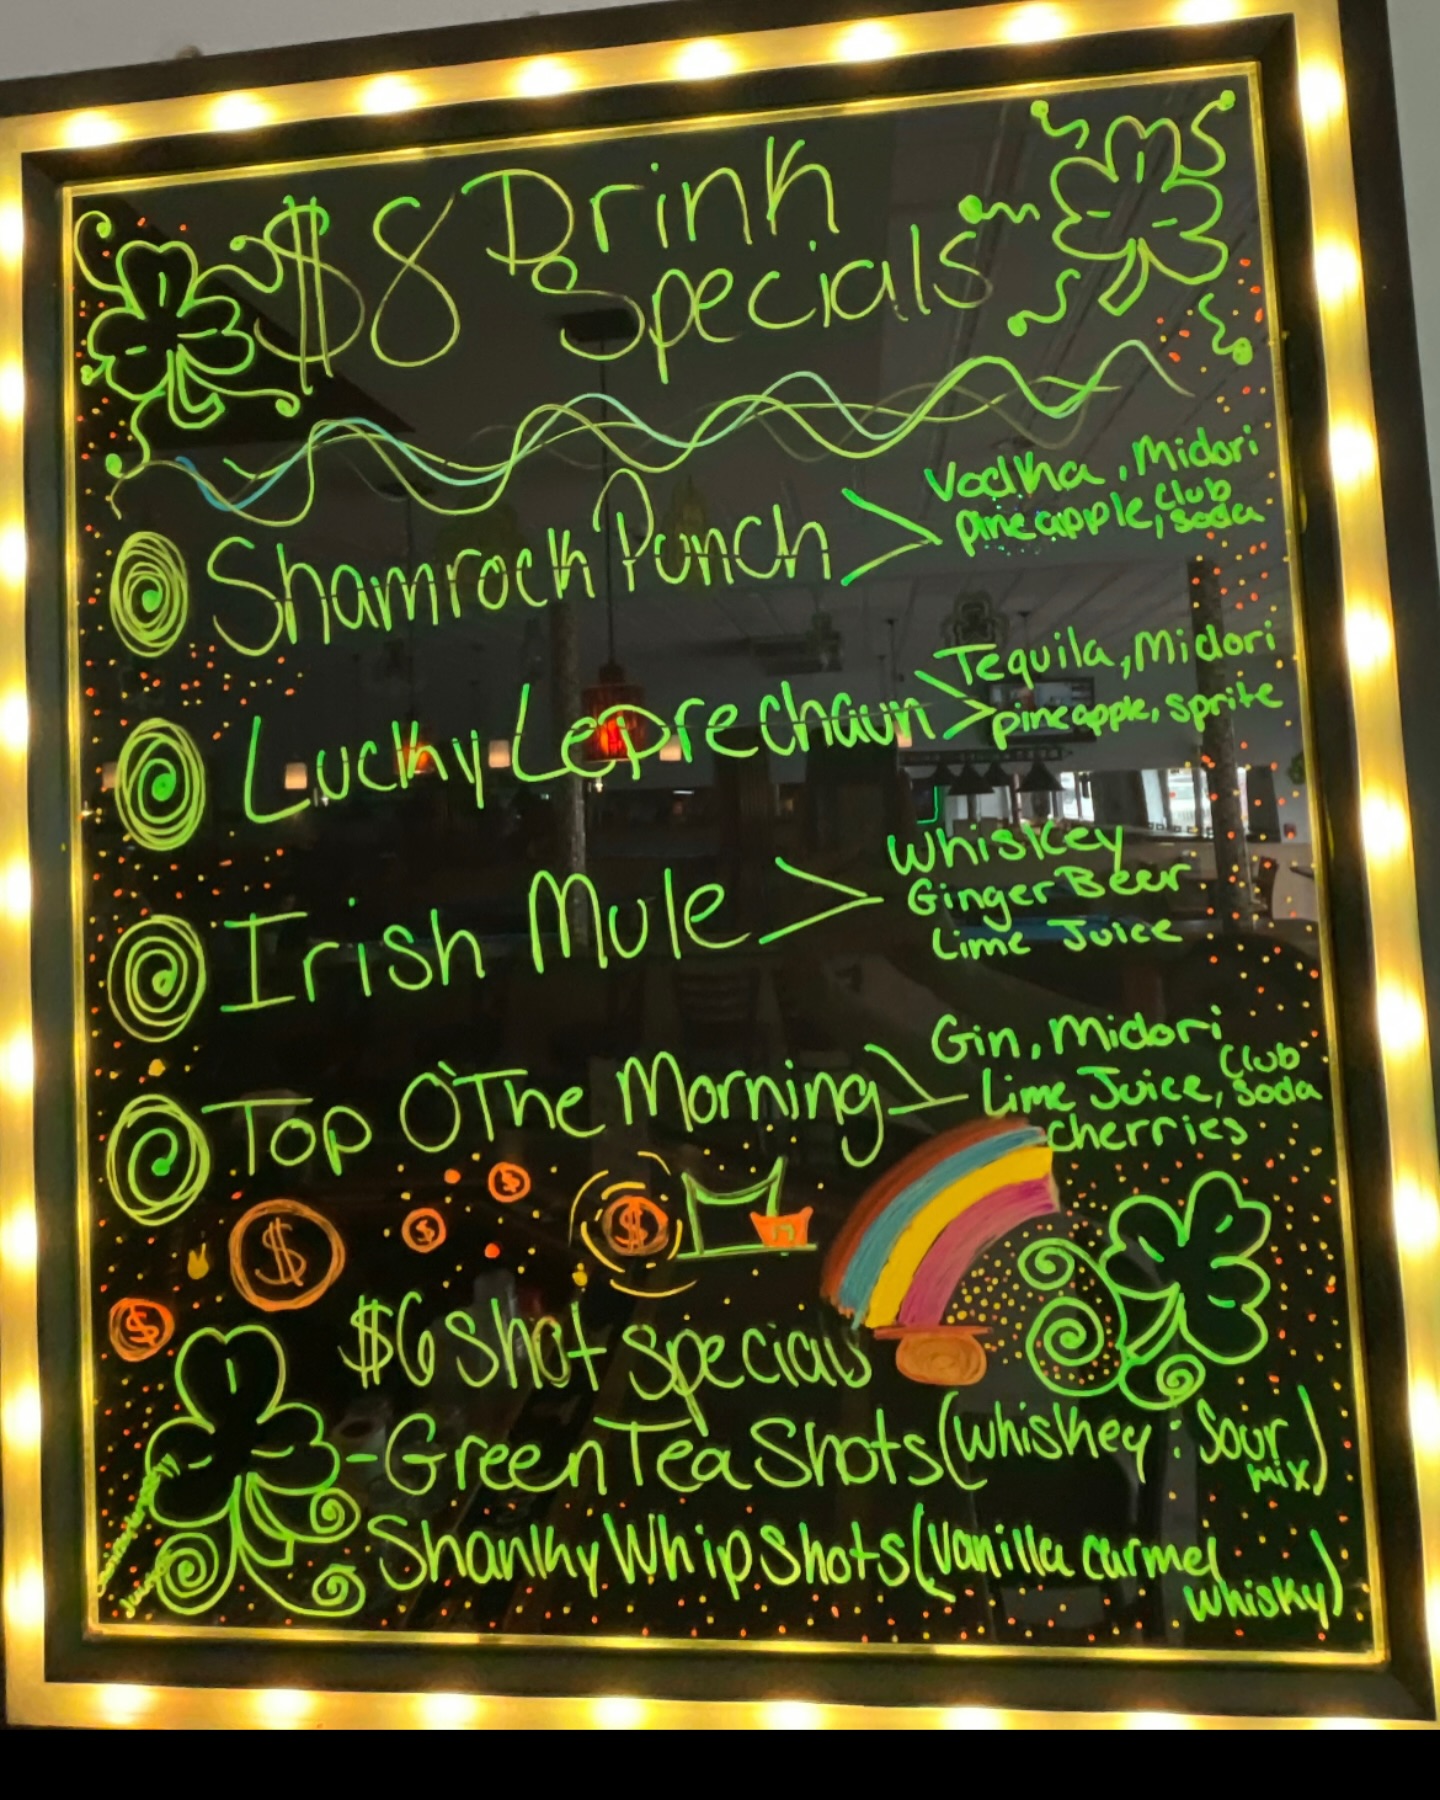 $8 Drink
Specials
Shamrock Punch > Vodka, Midori
pineapple, Club
Soda
Lucky Leprechaun > Tequila, Midori
pineapple, Sprite
Irish Mule > Whiskey
Ginger Beer
Lime Juice
Top O'The Morning > Gin, Midori
Lime Juice, Club
Soda
Cherries
$
$
$
$
$
$6 Shot Specials
-Green Tea Shots (Whiskey : Sour
mix)
Shanky Whip Shots (Vanilla Carmel
Whisky)